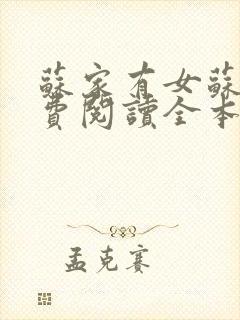 蘇家有女蘇
費閱讀全本
孟克赛